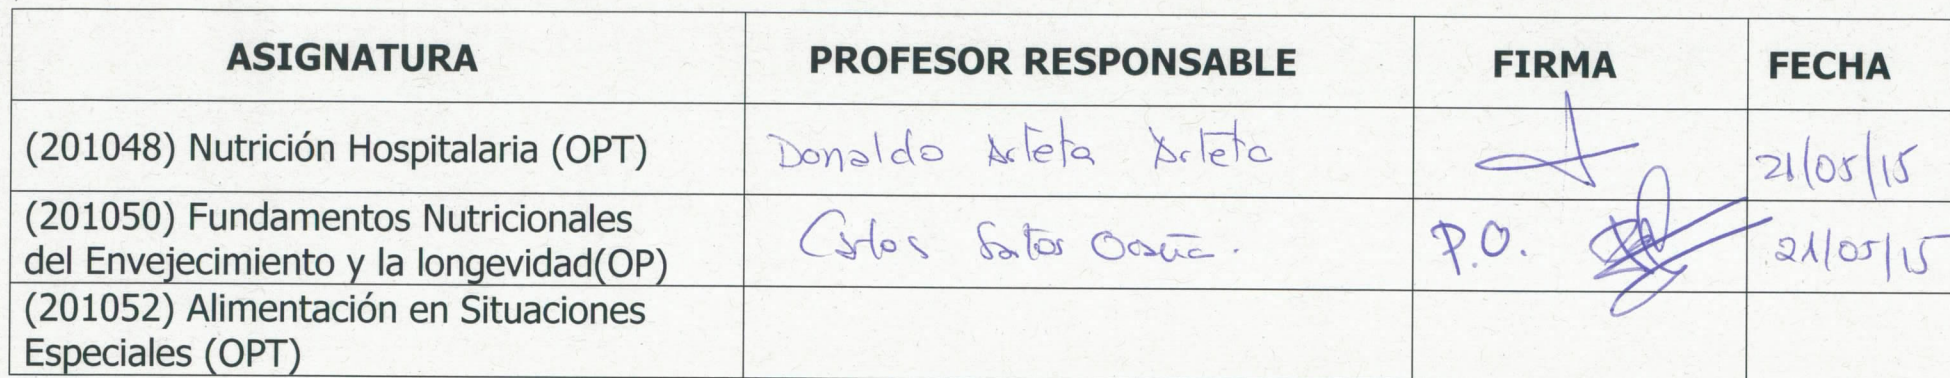 ASIGNATURA PROFESOR RESPONSABLE FIRMA FECHA
(201048) Nutrición Hospitalaria (OPT) Donaldo Arteta Arteta 21/05/15
(201050) Fundamentos Nutricionales
del Envejecimiento y la longevidad(OP) Carlos Santos Ocaña. P.O. 21/05/15
(201052) Alimentación en Situaciones
Especiales (OPT)